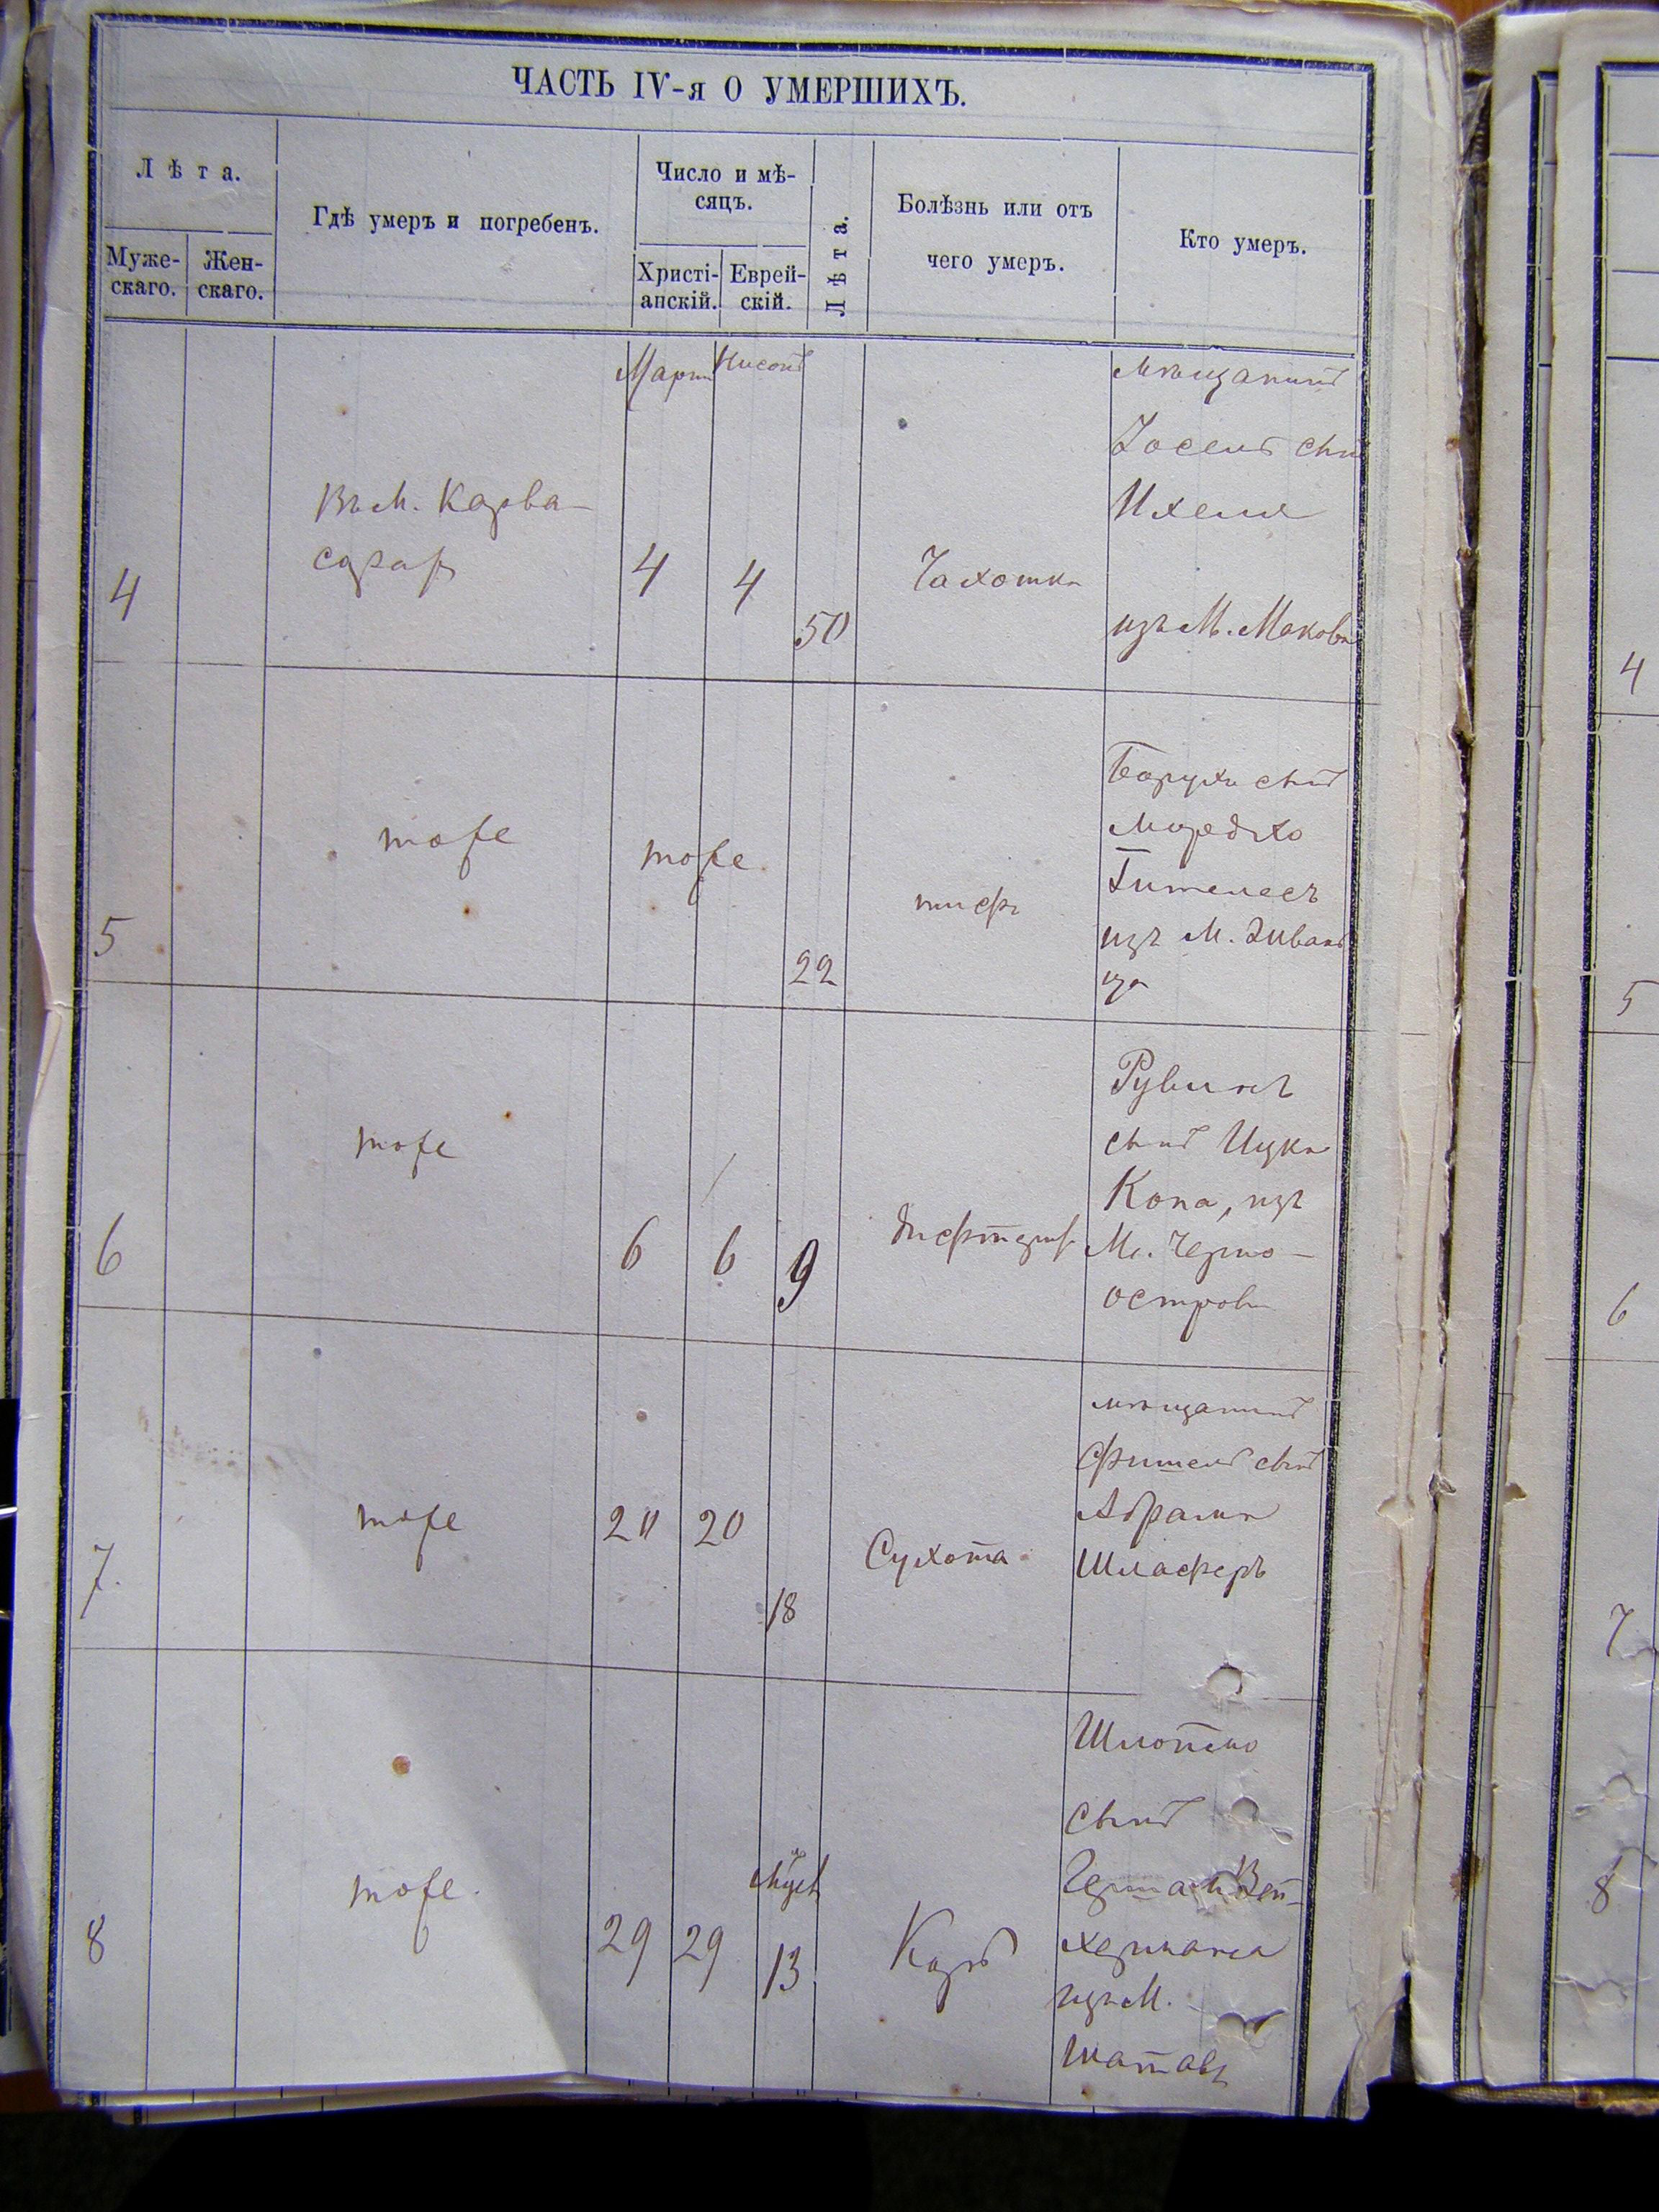 ЧАСТЬ IV-я О УМЕРШИХЪ.
Лѣта.
Муже-
скаго.
Жен-
скаго.
Гдѣ умеръ и погребенъ.
Число и мѣ-
сяцъ.
Христі-
анскій.
Еврей-
скій.
Лѣта.
Болѣзнь или отъ
чего умеръ.
Кто умеръ.
Мартъ
Нисонъ
4
Въ М. Карва-
сарах
4
4
50
Чахотка
мѣщанинъ
Іосель сын
Ихеля
изъ М. Макова
5
тоже
тоже
22
тиф
Борухъ сынъ
Мордхо
Гителесъ
изъ М. Живан
ца
6
тоже
6
6
9
дифтерит
Рувинъ
сынъ Ицка
Копа, изъ
М. Черно-
острова
7
тоже
20
20
18
Сухота
мѣщанинъ
Фишель сынъ
Абрама
Шлаферъ
8
тоже.
29
29
13
Корь
Шлопмо
сынъ
Герша Вей-
хермана
изъ М.
Шатавъ
4
5
6
7
8